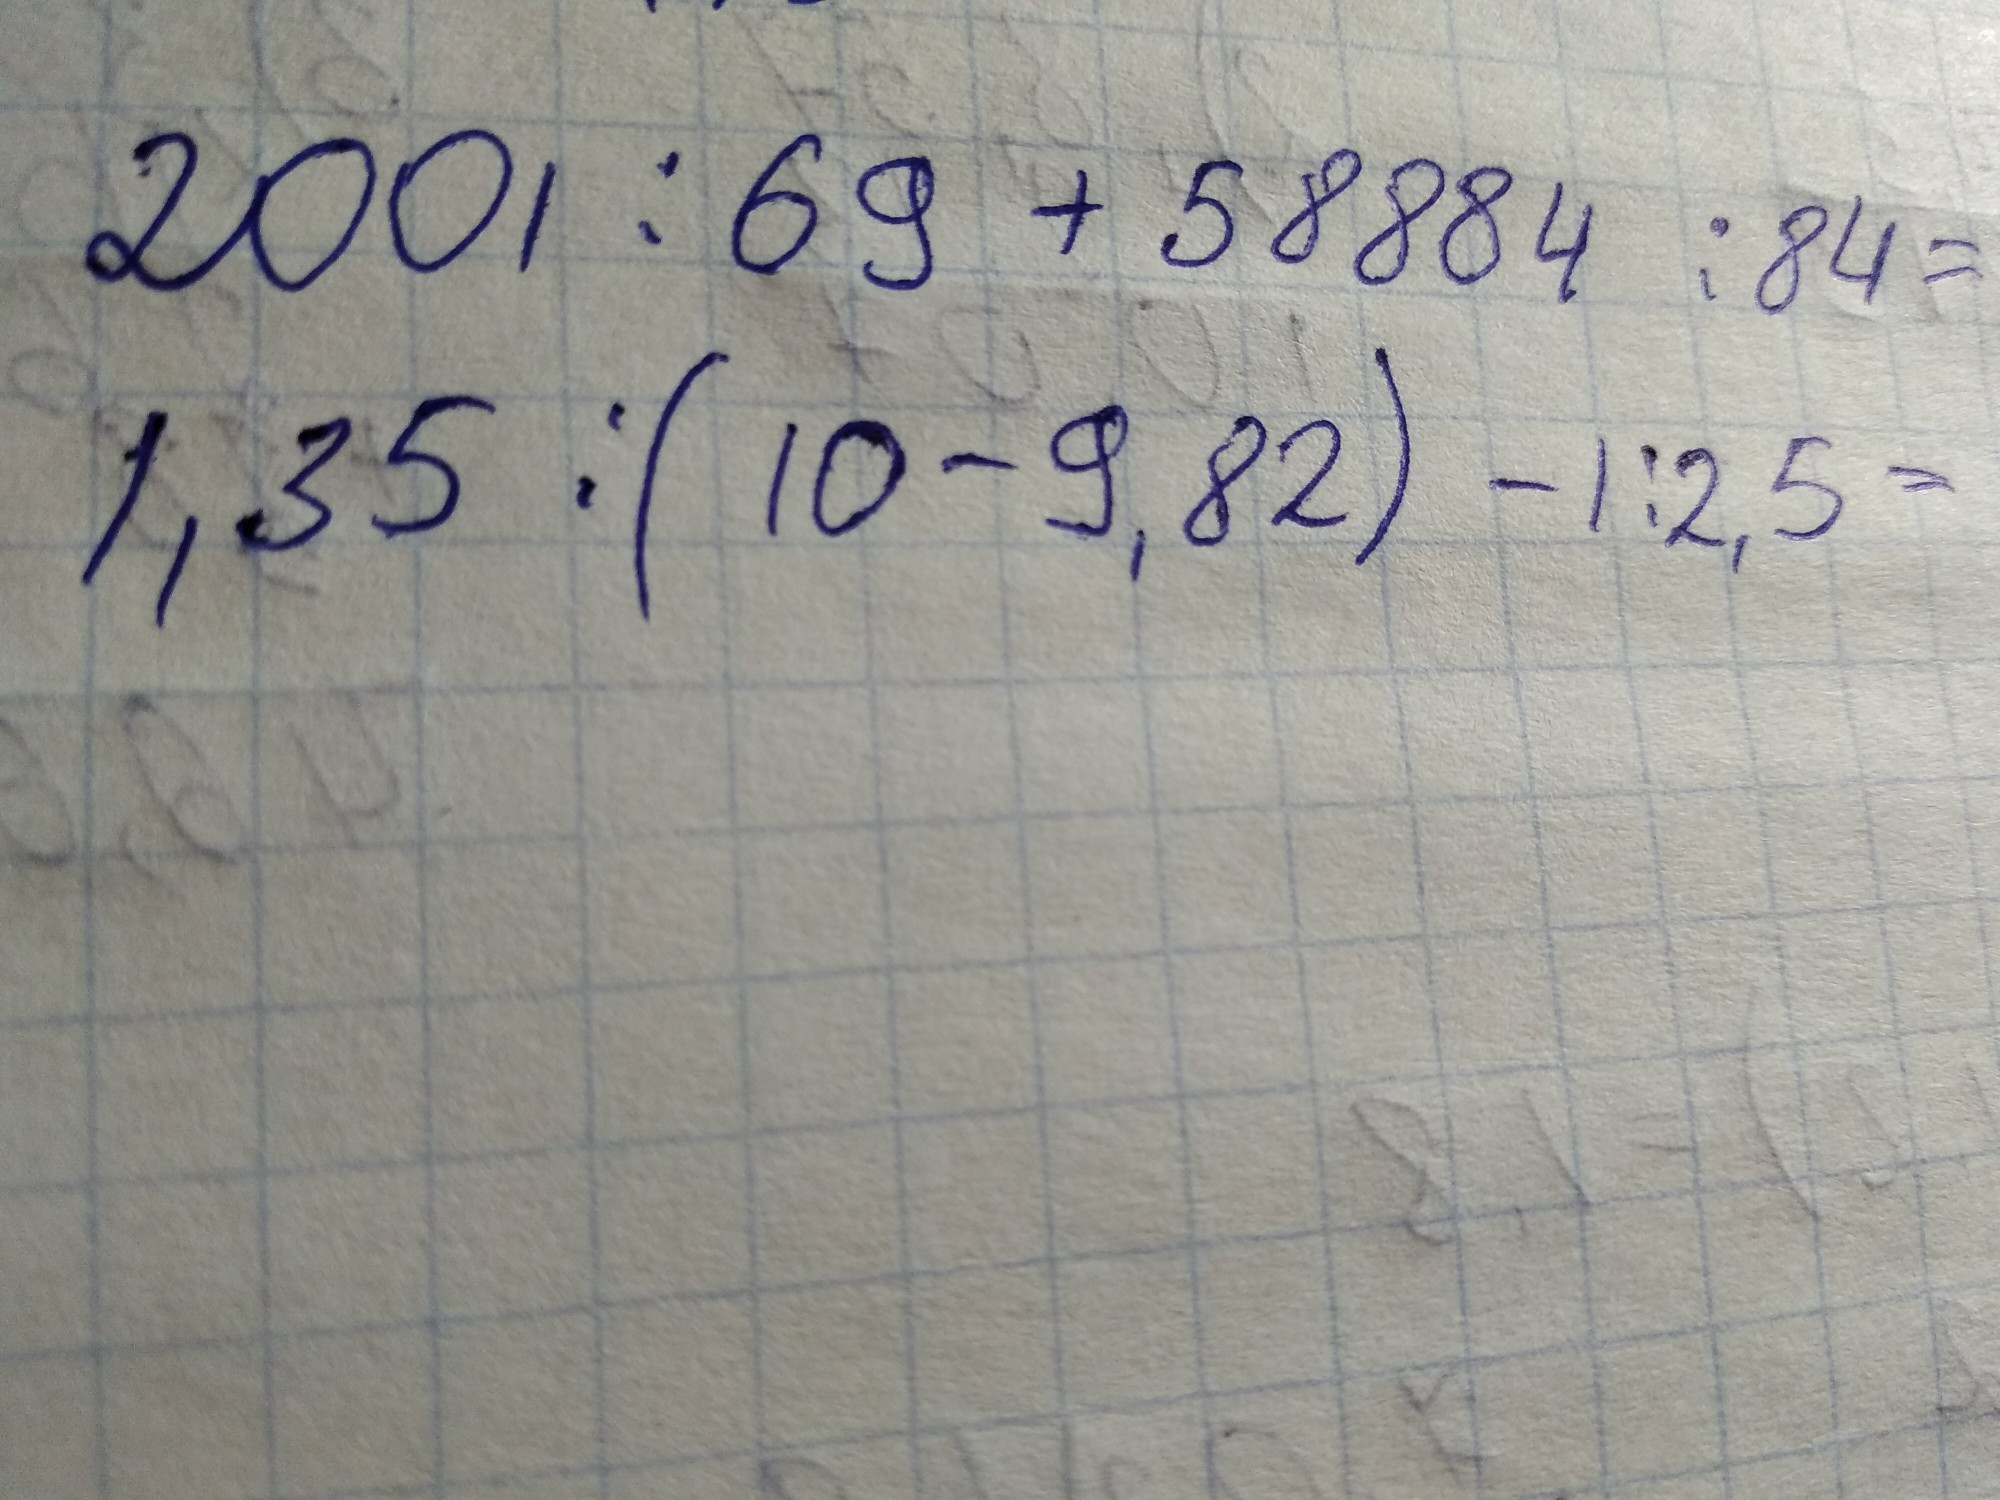 2001 : 69 + 58884 : 84 =
1,35 : (10 - 9,82) - 1 : 2,5 =